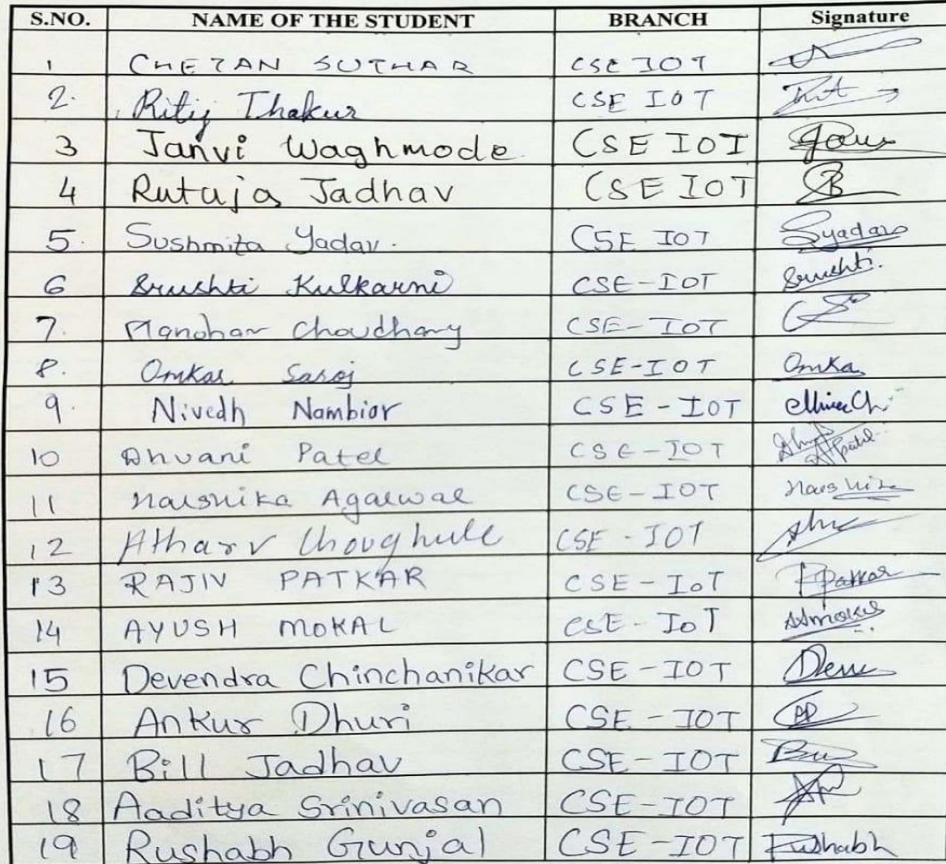 S.NO. NAME OF THE STUDENT BRANCH Signature
1 CHETAN SUTHAR CSE IOT
2. Ritij Thakur CSE IOT
3 Janvi Waghmode CSE IOT
4 Rutuja Jadhav CSE IOT
5. Sushmita Yadav. CSE IOT Syadav
6 Srushti Kulkarni CSE-IOT Srushti.
7. Manohar Choudhary CSE-IOT
8. Omkar Saroj CSE-IOT Omka
9. Nivedh Nambior CSE-IOT
10 Dhvani Patel CSE-IOT
11 Harshika Agarwal CSE-IOT
12 Atharv Choughule CSE-IOT
13 RAJIV PATKAR CSE-IoT
14 AYUSH MOKAL CSE-IoT
15 Devendra Chinchanikar CSE-IOT
16 Ankur Dhuri CSE-IOT
17 Bill Jadhav CSE-IOT
18 Aaditya Srinivasan CSE-IOT
19 Rushabh Gunjal CSE-IOT Rushabh